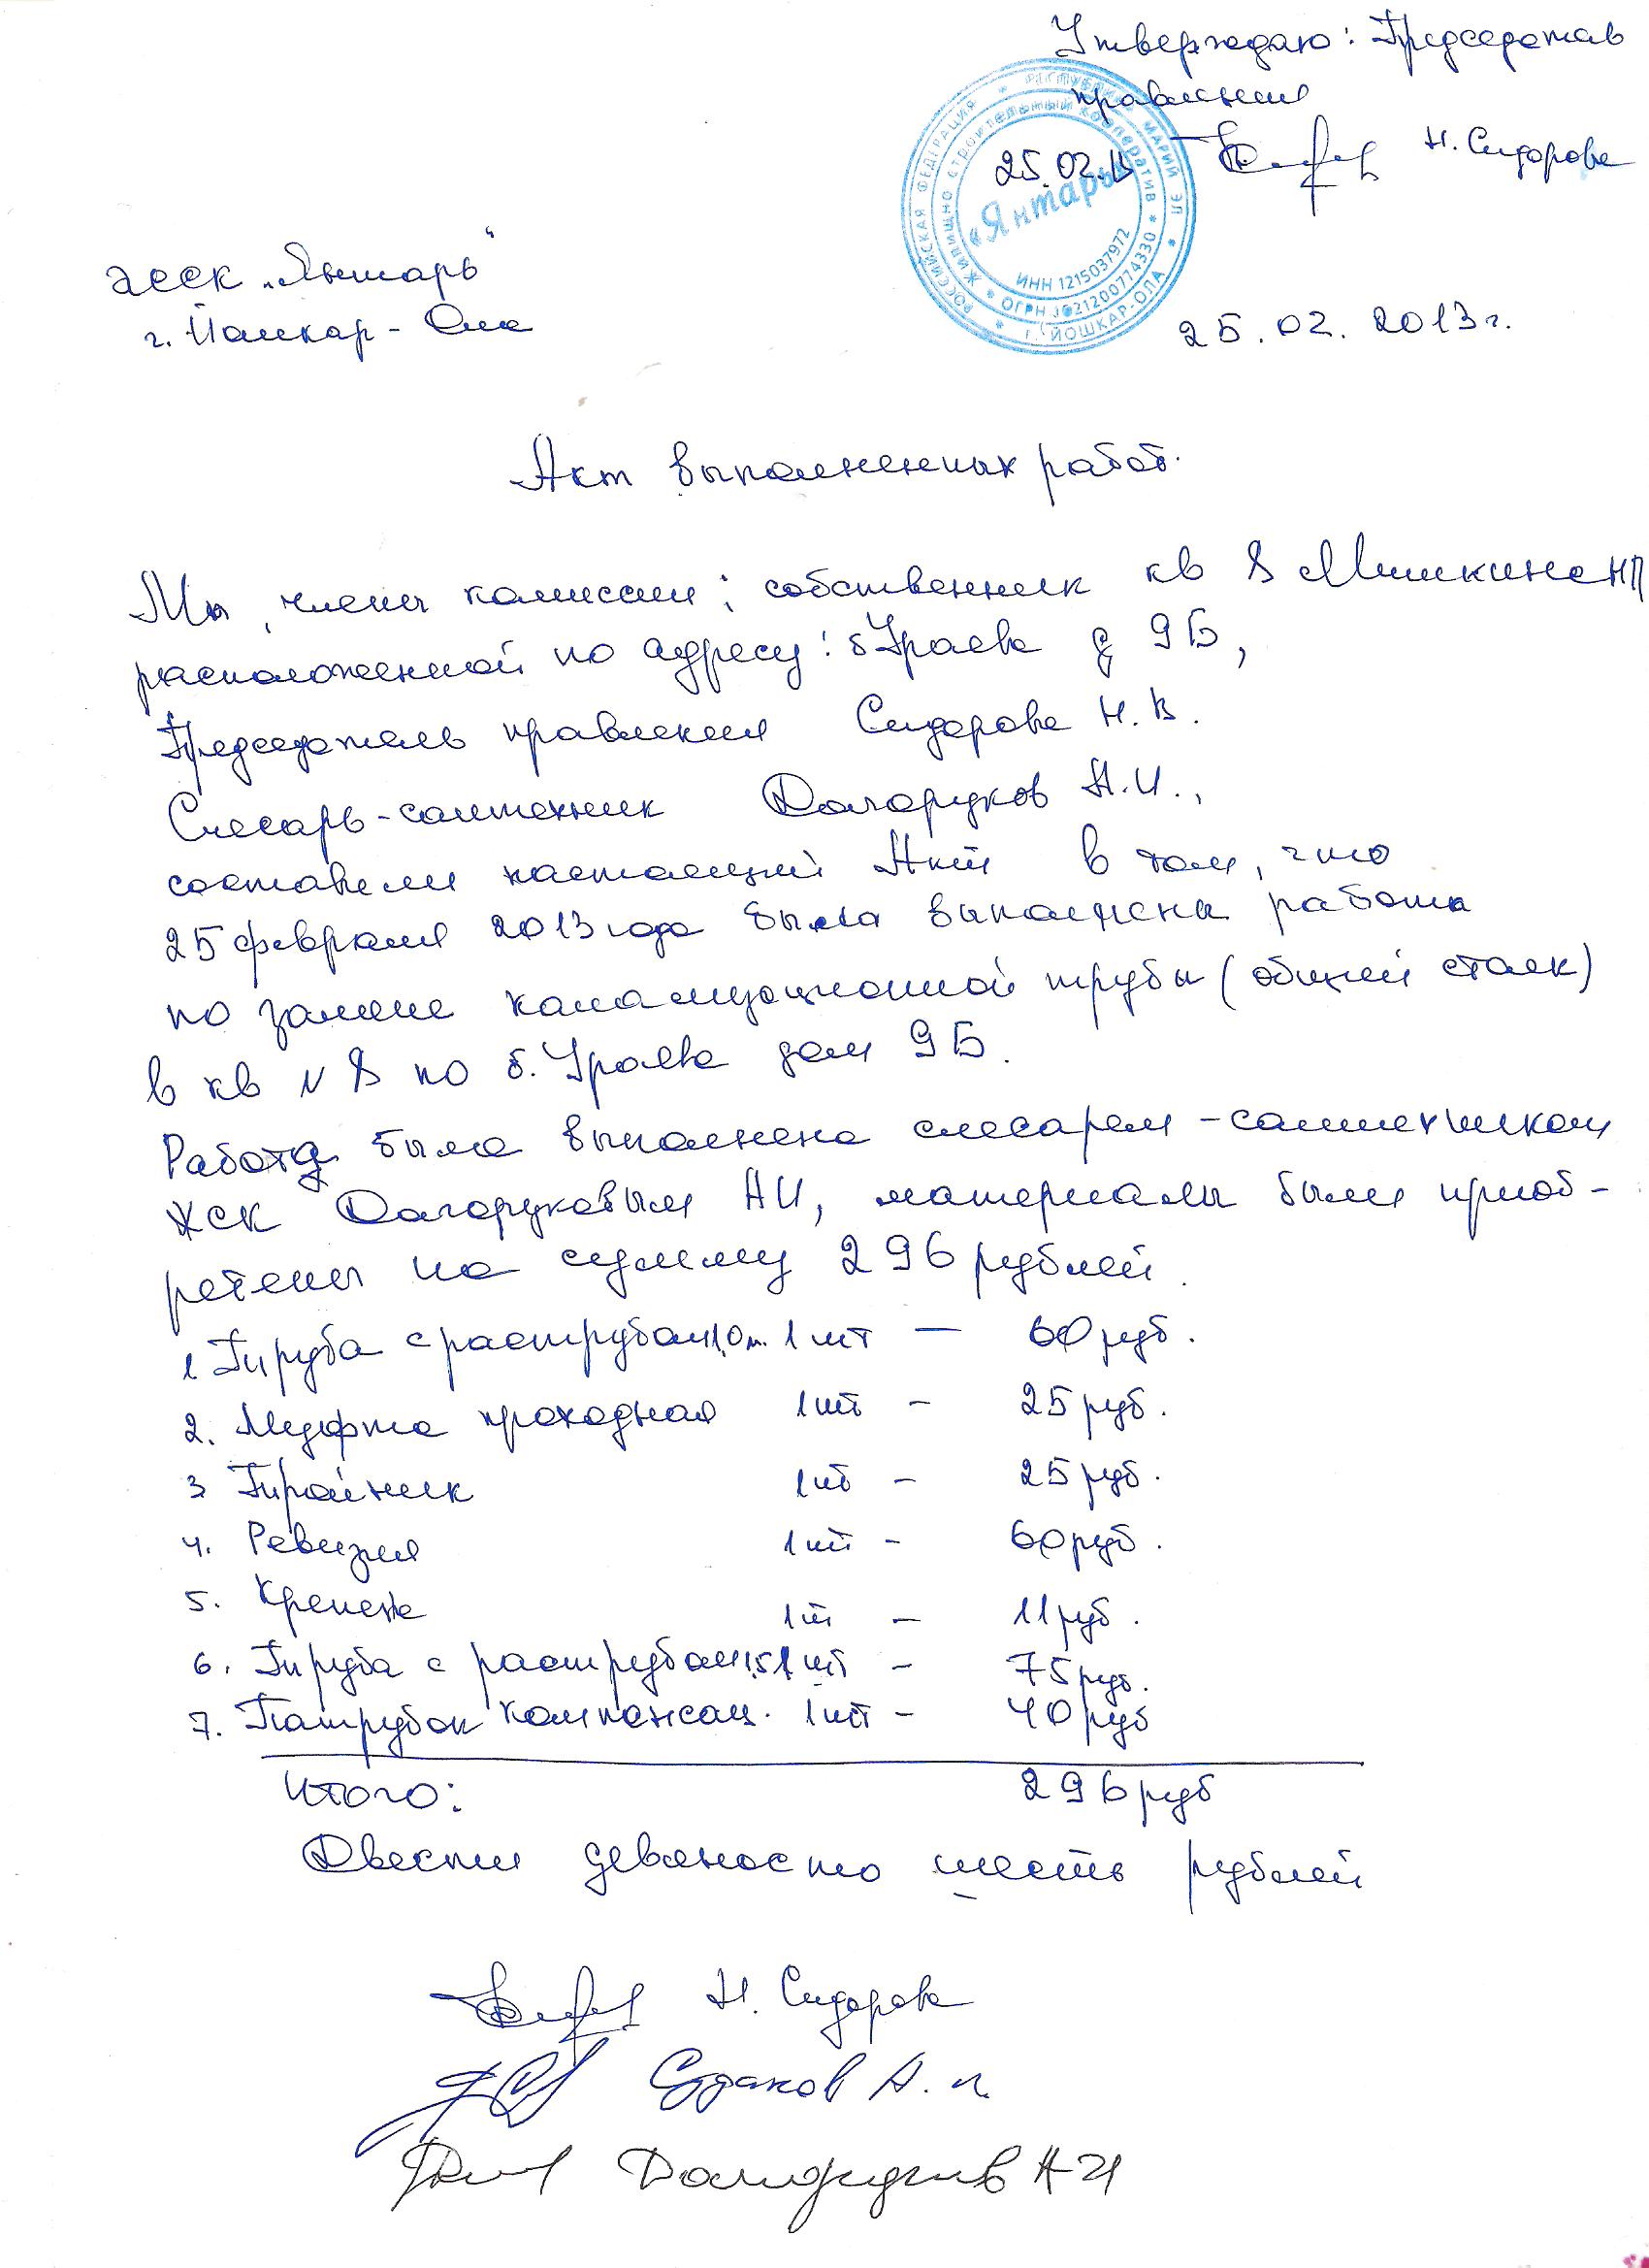 Утверждаю: Председатель
правления
25.02.13 Н. Сидорова
РОССИЙСКАЯ ФЕДЕРАЦИЯ * РЕСПУБЛИКА МАРИЙ ЭЛ * Г. ЙОШКАР-ОЛА *
Жилищно строительный кооператив * ОГРН 1021200774330 *
«Янтарь»
ИНН 1215037972
ЖСК „Янтарь“
г. Йошкар-Ола
25.02.2013г.
Акт выполненных работ.
Мы, члены комиссии: собственник кв 8 Мишкина НП
расположенной по адресу: б Ураева д 9Б,
Председатель правления Сидорова Н.В.
Слесарь-сантехник Долгоруков А.И.,
составели настоящий Акт в том, что
25 февраля 2013 года была выполнена работа
по замене канализационной трубы (общий стояк)
в кв N 8 по б. Ураева дом 9Б.
Работа была выполнена слесарем-сантехником
ЖСК Долгоруковым АИ, материалы были приоб-
ретены на сумму 296 рублей.
1 Труба с раструбом 1,0м. 1 шт — 60 руб.
2. Муфта проходная 1шт - 25 руб.
3 Тройник 1шт - 25 руб.
4. Ревизия 1шт - 60 руб.
5. Крепеж 1шт - 11 руб.
6. Труба с раструбом 1,5 1 шт - 75 руб.
7. Патрубок компенсац. 1шт - 40 руб
Итого: 296 руб
Двести девяносто шесть рублей
Н. Сидорова
А. И.
Долгоруков А И